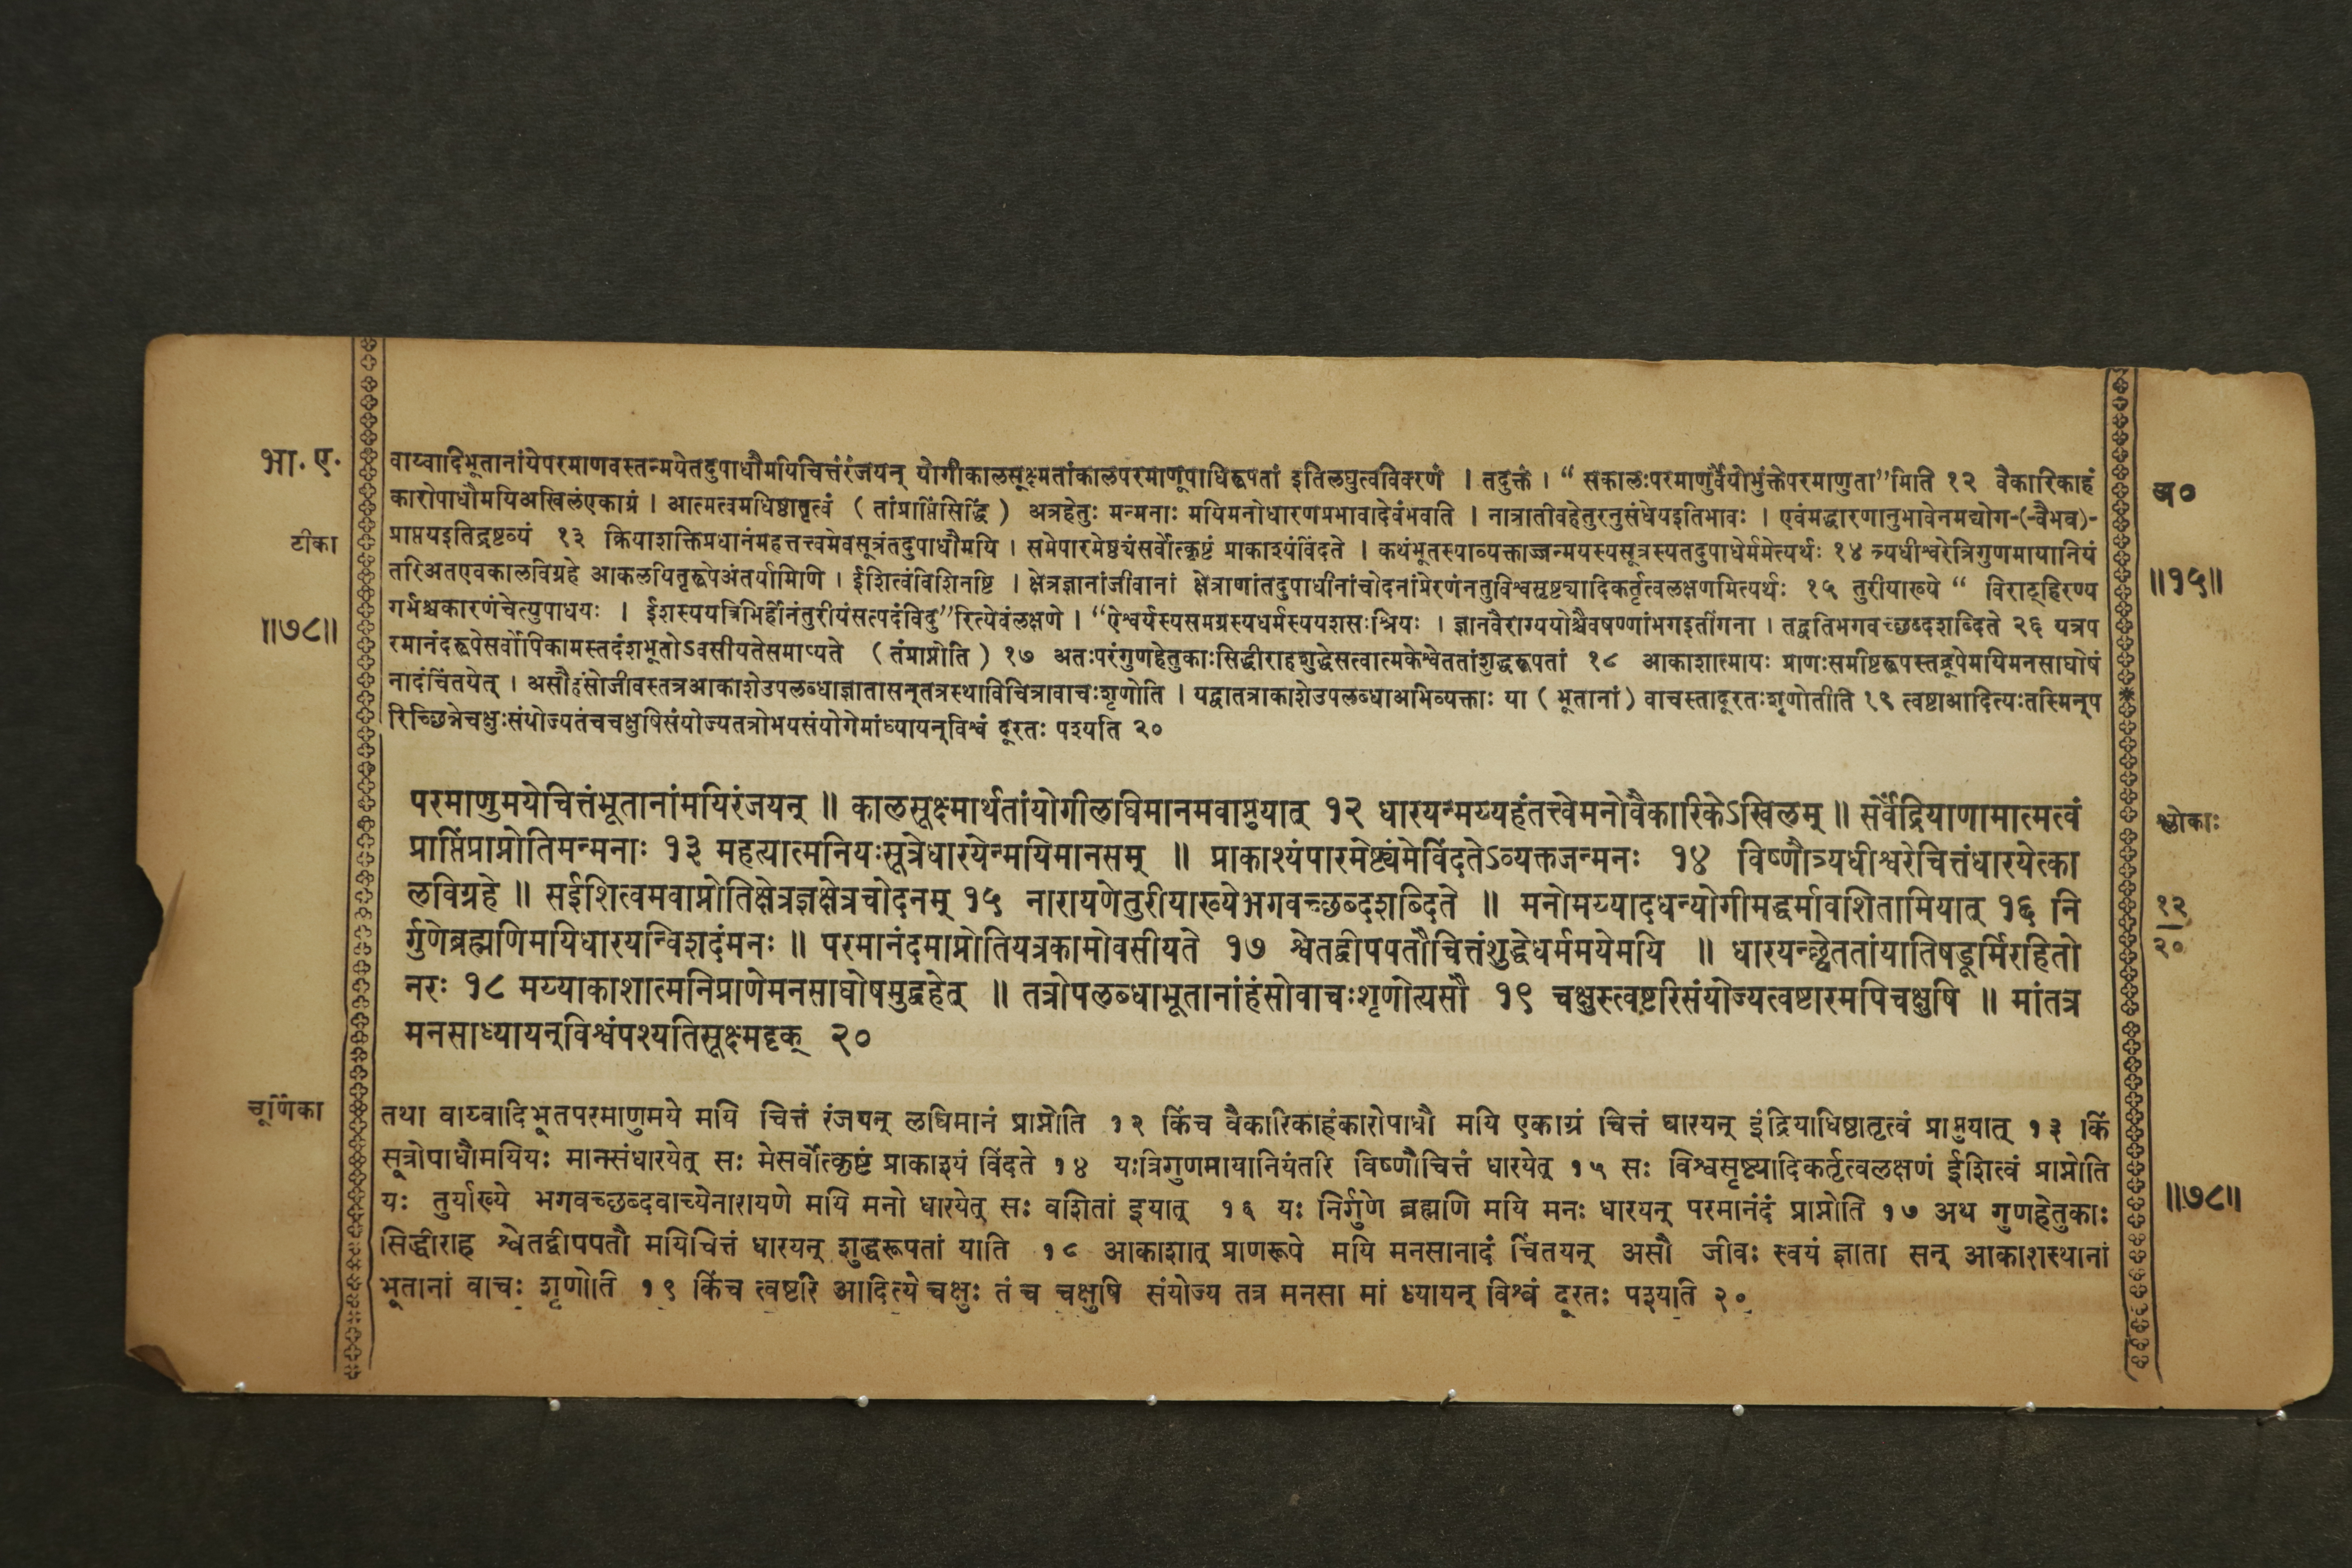 भा. ए.
वाय्वादिभूतानांयेपरमाणवस्तन्मयेतदुपाधौमयिचित्तंरंजयन् योगीकालसूक्ष्मतांकालपरमाणूपाधिरूपतां इतिलघुत्वविवरणं । तदुक्तं । “ सकालःपरमाणुर्वैयोभुंक्तेपरमाणुता”मिति १२ वैकारिकाहं
अ०
कारोपाधौमयिअखिलंएकाग्रं । आत्मत्वमधिष्ठातृत्वं ( तांप्राप्तिंसिद्धिं ) अत्रहेतुः मन्मनाः मयिमनोधारणप्रभावादेवंभवति । नात्रातीवहेतुरनुसंधेयइतिभावः । एवंमद्धारणानुभावेनमद्योग-(-वैभव)-
टीका
प्राप्तयइतिद्रष्टव्यं १३ क्रियाशक्तिप्रधानंमहत्तत्त्वमेवसूत्रंतदुपाधौमयि । समेपारमेष्ठ्यंसर्वोत्कृष्टं प्राकाश्यंविंदते । कथंभूतस्याव्यक्ताज्जन्मयस्यसूत्रस्यतदुपाधेर्ममेत्यर्थः १४ त्र्यधीश्वरेत्रिगुणमायानियं
तरिअतएवकालविग्रहे आकलयितृरूपेअंतर्यामिणि । ईशित्वंविशिनष्टि । क्षेत्रज्ञानांजीवानां क्षेत्राणांतदुपाधीनांचोदनांप्रेरणंनतुविश्वसृष्ट्यादिकर्तृत्वलक्षणमित्यर्थः १५ तुरीयाख्ये “ विराट्हिरण्य
॥१५॥
॥७८॥
गर्भश्चकारणंचेत्युपाधयः । ईशस्ययत्रिभिर्हीनंतुरीयंसत्पदंविदु”रित्येवंलक्षणे । “ऐश्वर्यस्यसमग्रस्यधर्मस्ययशसःश्रियः । ज्ञानवैराग्ययोश्चैवषण्णांभगइतींगना । तद्वतिभगवच्छब्दशब्दिते २६ यत्रप
रमानंदरूपेसर्वोपिकामस्तदंशभूतोऽवसीयतेसमाप्यते ( तंप्राप्नोति ) १७ अतःपरंगुणहेतुकाःसिद्धीराहशुद्धेसत्वात्मकेश्वेततांशुद्धरूपतां १८ आकाशात्मायः प्राणःसमष्टिरूपस्तद्रूपेमयिमनसाघोषं
नादंचिंतयेत् । असौहंसोजीवस्तत्रआकाशेउपलब्धाज्ञातासन्तत्रस्थाविचित्रावाचःशृणोति । यद्वातत्राकाशेउपलब्धाअभिव्यक्ताः या ( भूतानां ) वाचस्तादूरतःशृणोतीति १९ त्वष्टाआदित्यःतस्मिन्प
रिच्छिन्नेचक्षुःसंयोज्यतंचचक्षुषिसंयोज्यतत्रोभयसंयोगेमांध्यायन्विश्वं दूरतः पश्यति २०
परमाणुमयेचित्तंभूतानांमयिरंजयन् ॥ कालसूक्ष्मार्थतांयोगीलघिमानमवाप्नुयात् १२ धारयन्मय्यहंतत्त्वेमनोवैकारिकेऽखिलम् ॥ सर्वेंद्रियाणामात्मत्वं
श्लोकाः
प्राप्तिंप्राप्नोतिमन्मनाः १३ महत्यात्मनियःसूत्रेधारयेन्मयिमानसम् ॥ प्राकाश्यंपारमेष्ठ्यंमेविंदतेऽव्यक्तजन्मनः १४ विष्णौत्र्यधीश्वरेचित्तंधारयेत्का
लविग्रहे ॥ सईशित्वमवाप्नोतिक्षेत्रज्ञक्षेत्रचोदनम् १५ नारायणेतुरीयाख्येभगवच्छब्दशब्दिते ॥ मनोमय्यादधन्योगीमद्धर्मावशितामियात् १६ नि
१२
र्गुणेब्रह्मणिमयिधारयन्विशदंमनः ॥ परमानंदमाप्नोतियत्रकामोवसीयते १७ श्वेतद्वीपपतौचित्तंशुद्धेधर्ममयेमयि ॥ धारयन्छ्वेततांयातिषडूर्मिरहितो
२०
नरः १८ मय्याकाशात्मनिप्राणेमनसाघोषमुद्वहेत् ॥ तत्रोपलब्धाभूतानांहंसोवाचःशृणोत्यसौ १९ चक्षुस्त्वष्टरिसंयोज्यत्वष्टारमपिचक्षुषि ॥ मांतत्र
मनसाध्यायन्विश्वंपश्यतिसूक्ष्मदृक् २०
चूर्णिका
तथा वाय्वादिभूतपरमाणुमये मयि चित्तं रंजयन् लघिमानं प्राप्नोति १२ किंच वैकारिकाहंकारोपाधौ मयि एकाग्रं चित्तं धारयन् इंद्रियाधिष्ठातृत्वं प्राप्नुयात् १३ किं
सूत्रोपाधौमयियः मानसंधारयेत् सः मेसर्वोत्कृष्टं प्राकाश्यं विंदते १४ यःत्रिगुणमायानियंतरि विष्णौचित्तं धारयेत् १५ सः विश्वसृष्ट्यादिकर्तृत्वलक्षणं ईशित्वं प्राप्नोति
यः तुर्याख्ये भगवच्छब्दवाच्येनारायणे मयि मनो धारयेत् सः वशितां इयात् १६ यः निर्गुणे ब्रह्मणि मयि मनः धारयन् परमानंदं प्राप्नोति १७ अथ गुणहेतुकाः
॥७८॥
सिद्धीराह श्वेतद्वीपपतौ मयिचित्तं धारयन् शुद्धरूपतां याति १८ आकाशात् प्राणरूपे मयि मनसानादं चिंतयन् असौ जीवः स्वयं ज्ञाता सन् आकाशस्थानां
भूतानां वाचः शृणोति १९ किंच त्वष्टरि आदित्ये चक्षुः तं च चक्षुषि संयोज्य तत्र मनसा मां ध्यायन् विश्वं दूरतः पश्यति २०